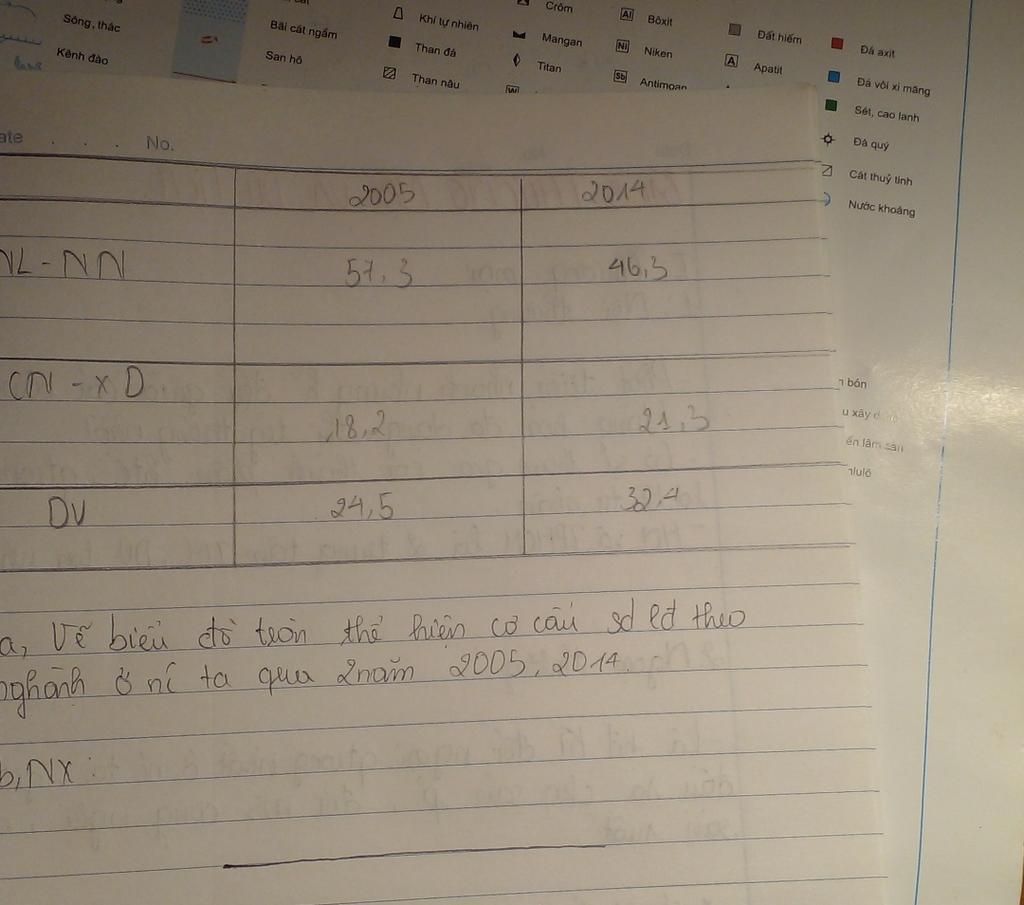 Crôm
Sông, thác
Bãi cát ngầm
Khí tự nhiên
Al
Bôxit
Đất hiếm
Đá axit
Kênh đào
San hô
Than đá
Mangan
Ni
Niken
A
Apatit
Đá vôi xi măng
Than nâu
Titan
Sb
Antimoan
Sét, cao lanh
Đá quý
Cát thuỷ tinh
Nước khoáng
ate . . . No.
2005 2014
NL - NN 57,3 46,3
CN - XD 18,2 21,3
DV 24,5 32,4
a, Vẽ biểu đồ tròn thể hiện cơ cấu sd lđ theo
nghành ở nc ta qua 2 năm 2005, 2014.
b, NX :
bón
u xây d
ến lâm sản
nlulô